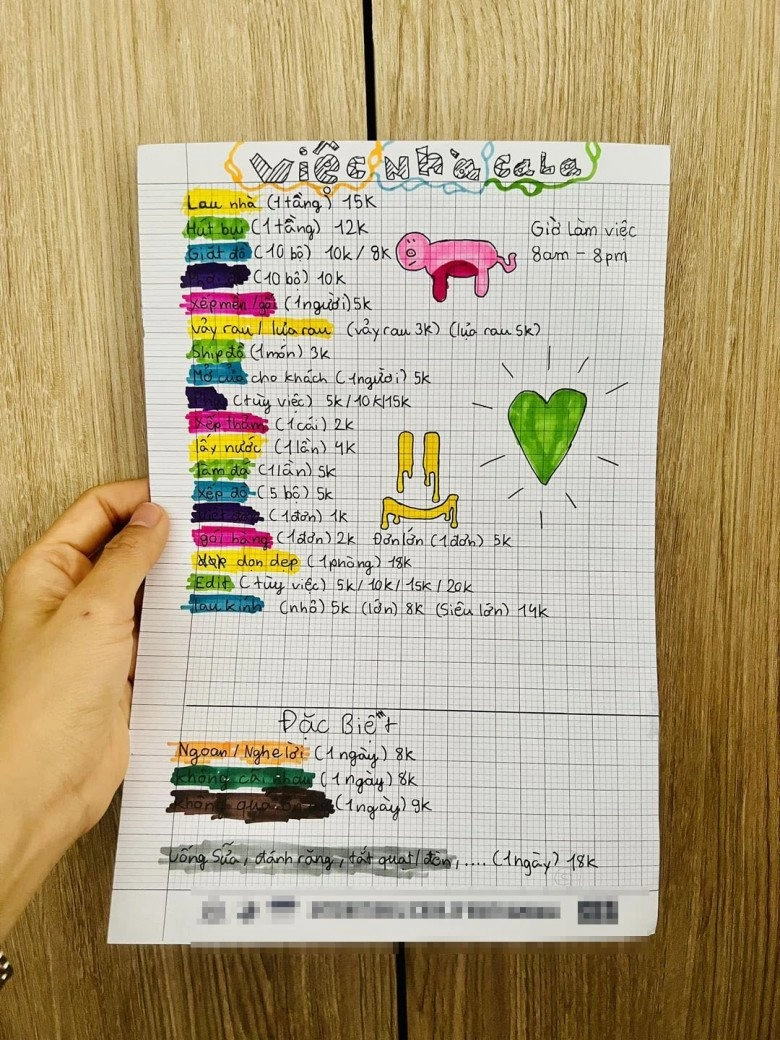 việc nhà cala
Lau nhà (1 tầng) 15k
Hút bụi (1 tầng) 12k
Giờ làm việc
Giặt đồ (10 bộ) 10k / 8k
8am – 8pm
(10 bộ) 10k
xếp mền /gối (1 người) 5k
vảy rau / lựa rau (vảy rau 3k) (lựa rau 5k)
Ship đồ (1 món) 3k
Mở cửa cho khách (1 người) 5k
(tùy việc) 5k / 10k / 15k
xếp thảm (1 cái) 2k
lấy nước (1 lần) 4k
làm đá (1 lần) 5k
xếp đồ (5 bộ) 5k
(1 đơn) 1k
gói hàng (1 đơn) 2k Đơn lớn (1 đơn) 5k
dọn dẹp (1 phòng) 18k
Edit (tùy việc) 5k / 10k / 15k / 20k
lau kính (nhỏ) 5k (lớn) 8k (siêu lớn) 14k
Đặc Biệt
Ngoan / Nghe lời (1 ngày) 8k
không cãi nhau (1 ngày) 8k
không quạu (1 ngày) 9k
uống sữa, đánh răng, tắt quạt / đèn, .... (1 ngày) 18k